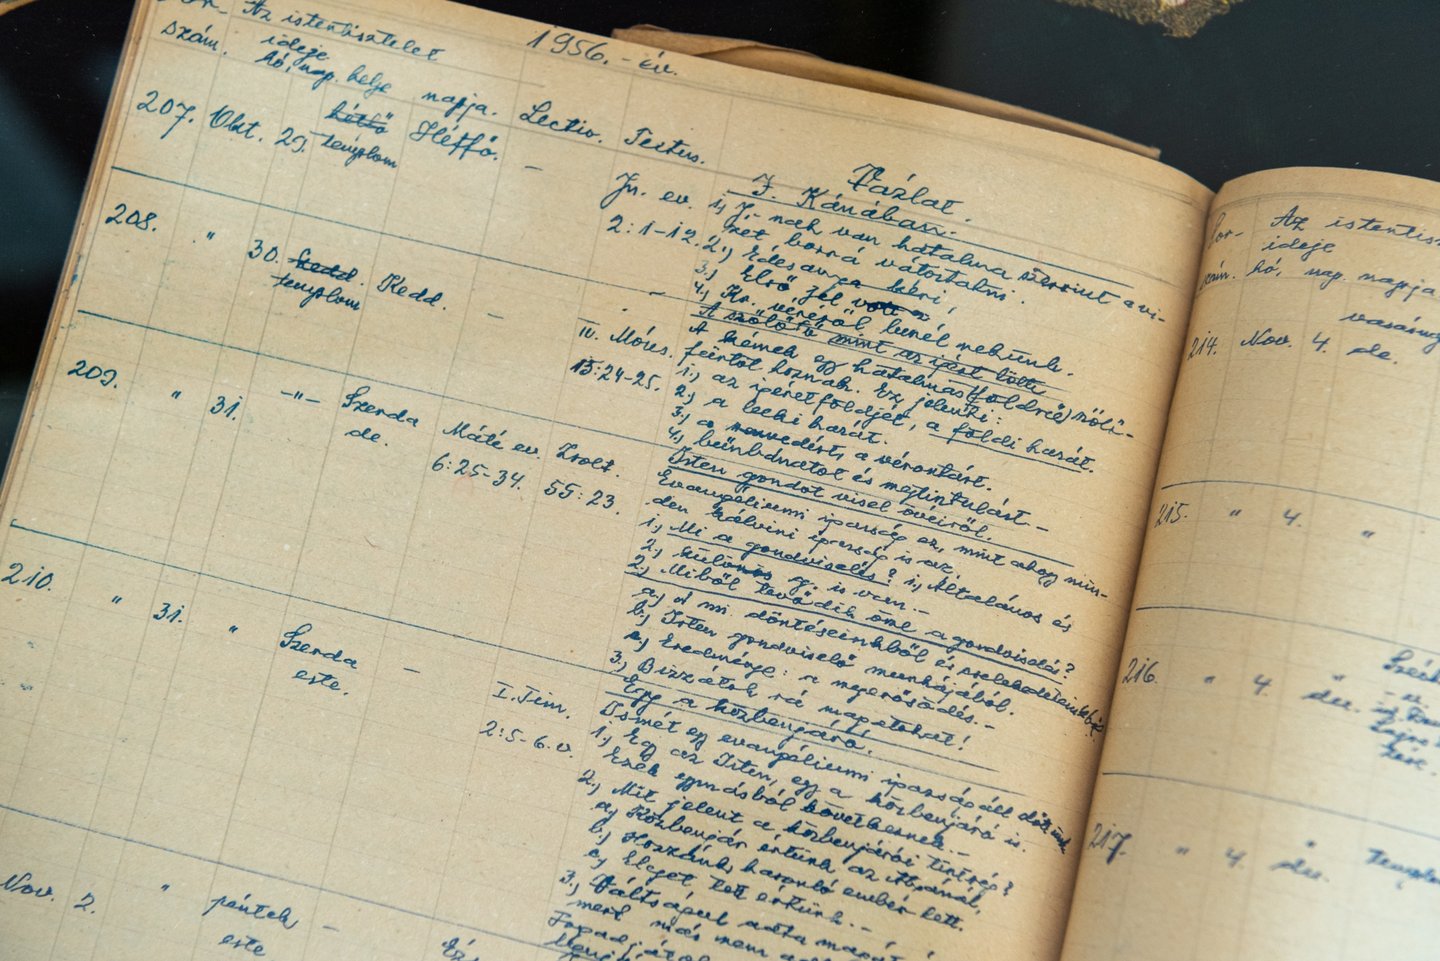 1956.-év.
Sor- Az istentisztelet
szám. ideje
hó, nap. helye napja. Lectio. Textus. Vázlat.
207. Okt. 29. hétfő Hétfő. – Jn. ev. J. Kánában.
templom 2:1-12.
1, J.-nak van hatalma szerint a vi-
zet borrá változtatni.
2.) Édesanya kéri!
3.) Első jel
4.) Kr. véréről beszél nekünk.
208. " 30. Kedd. Kedd. – IV. Mózes.
templom 13:24-25.
A szőlőtő mint az ígéret
A kémek egy hatalmas (földrű) szőlő-
fürtöt hoznak. Ez jelenti:
1.) az ígéret földjét, a földi hazát.
2.) a lelki hazát.
3.) a szenvedést, a vérontást.
4.) bűnbánatot és megtisztulást –
209. " 31. -"- Szerda Máté ev. Zsolt.
de. 6:25-34. 55:23.
Isten gondot visel övéiről.
Evangéliumi igazság az, mint ahogy min-
den kálvini igazság is az
1.) Mi a gondviselés? 1.) Általános és
2.) különös g. is van.-
2.) Miből tevődik össze a gondviselés?
a.) A mi döntéseinkből és cselekedeteinkből
b.) Isten gondviselő munkájából.
c.) Eredménye: a megerősödés.-
3.) Bízzátok rá magatokat!
210. " 31. " Szerda – I. Tim.
este. 2:5-6. v.
Egy a közbenjáró.
Ismét egy evangéliumi igazság áll előttünk
1.) Egy az Isten, egy a közbenjáró is.
Ezek egymásból következnek.-
2.) Mit jelent a közbenjárói tisztség?
a.) Közbenjár értünk az Atyánál,
b.) Hozzánk hasonló ember lett.
c.) Eleget tett értünk.-
3.) Váltságul adta magát
mert más nem
Nov. 2. " péntek –
este
Sor- Az
szám. ideje
hó, nap. napja
214. Nov. 4. de.
215. " 4. "
216. " 4. du.
217. " 4. du. templom